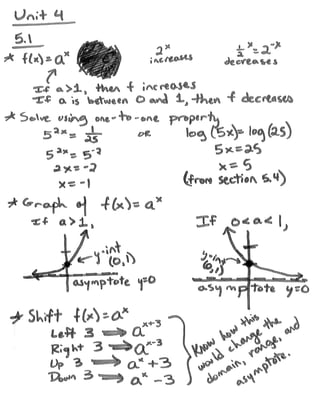 Unit 4
5.1
* f(x) = a^x    2^x increases    1/2^x = 2^-x decreases
If a>1, then f increases
If a is between 0 and 1, then f decreases
* Solve using one-to-one property
5^2x = 1/25    or    log(5x) = log(25)
5^2x = 5^-2    5x = 25
2x = -2    x = 5
x = -1    (from section 5.4)
* Graph of f(x) = a^x
If a>1,    If 0<a<1,
y-int (0,1)    y-int (0,1)
asymptote y=0    asymptote y=0
* Shift f(x) = a^x
Left 3 ⟹ a^x+3
Right 3 ⟹ a^x-3
Up 3 ⟹ a^x + 3
Down 3 ⟹ a^x - 3
Know how this
would change the
domain, range, and
asymptote.